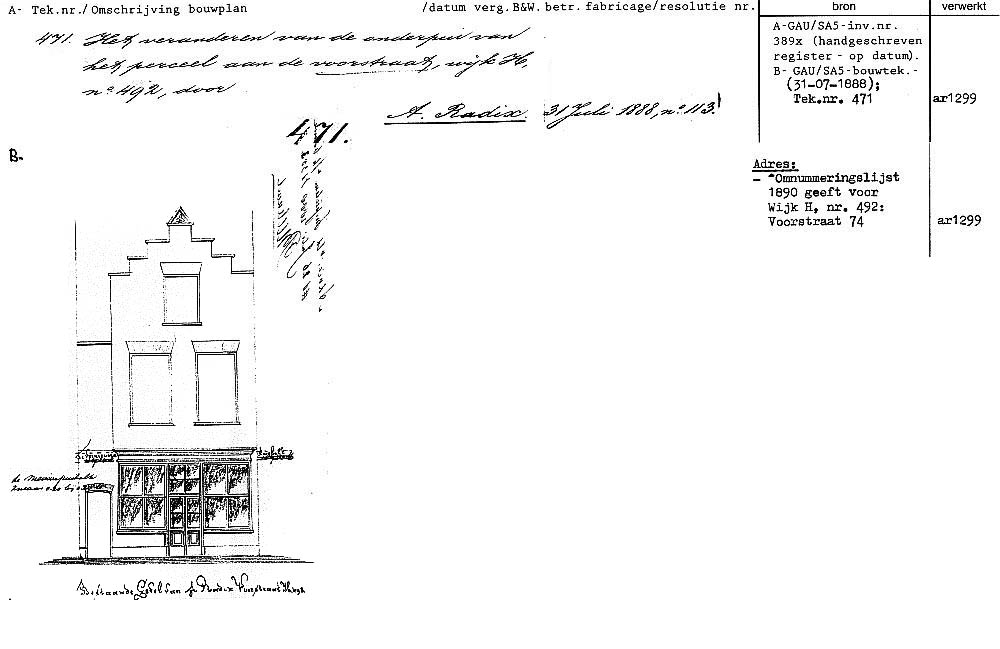 A- Tek.nr./Omschrijving bouwplan /datum verg.B&W. betr. fabricage/resolutie nr.
bron
verwerkt
471. Het veranderen van de onderpui van
het perceel aan de voorstraat, wijk H,
nº 492, door
A. Radix. 31 Juli 1888, nº 113.
A-GAU/SA5-inv.nr.
389x (handgeschreven
register - op datum).
B- GAU/SA5-bouwtek.-
(31-07-1888);
Tek.nr. 471
ar1299
Adres:
- "Omnummeringslijst
1890 geeft voor
Wijk H, nr. 492:
Voorstraat 74
ar1299
B-
471.
Bestaande Gevel van Radix Voorstraat